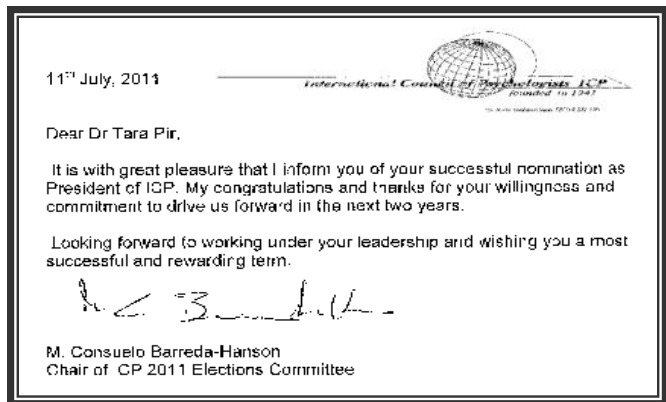 11th July, 2011
International Council of Psychologists ICP
founded in 1941
Dear Dr Tara Pir,
It is with great pleasure that I inform you of your successful nomination as
President of ICP. My congratulations and thanks for your willingness and
commitment to drive us forward in the next two years.
Looking forward to working under your leadership and wishing you a most
successful and rewarding term.
M. Consuelo Barreda-Hanson
Chair of ICP 2011 Elections Committee